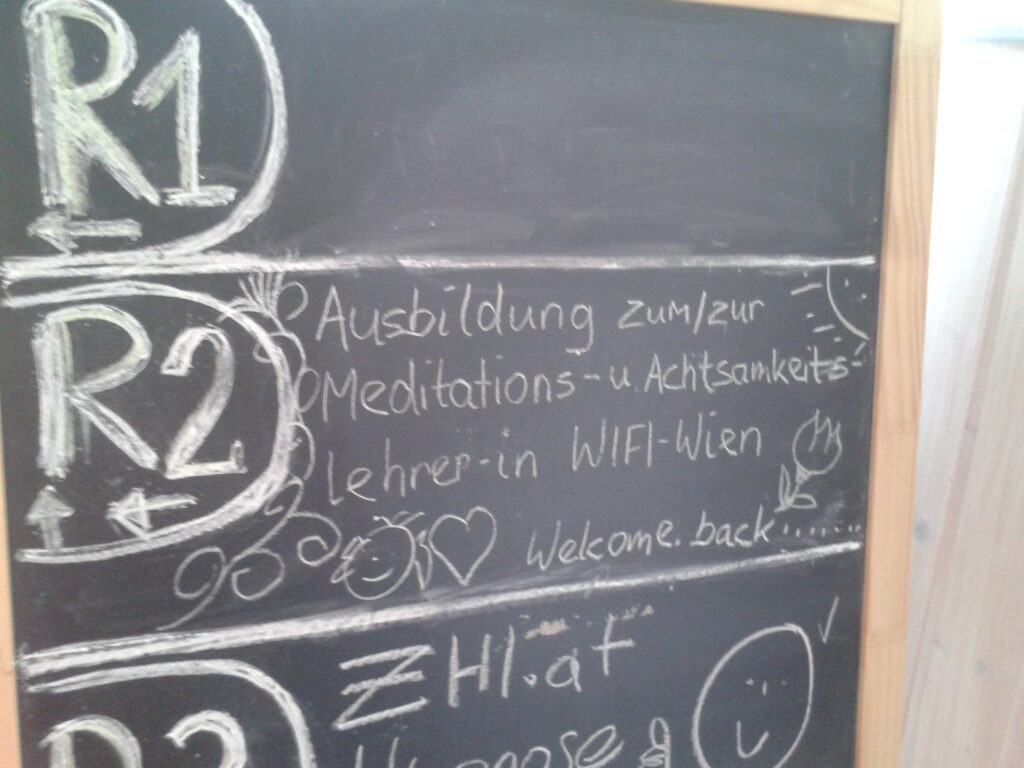 R1
R2
Ausbildung zum/zur
Meditations-u. Achtsamkeits-
Lehrer-in WIFI-Wien
Welcome.back
ZHI.at
Hypnose